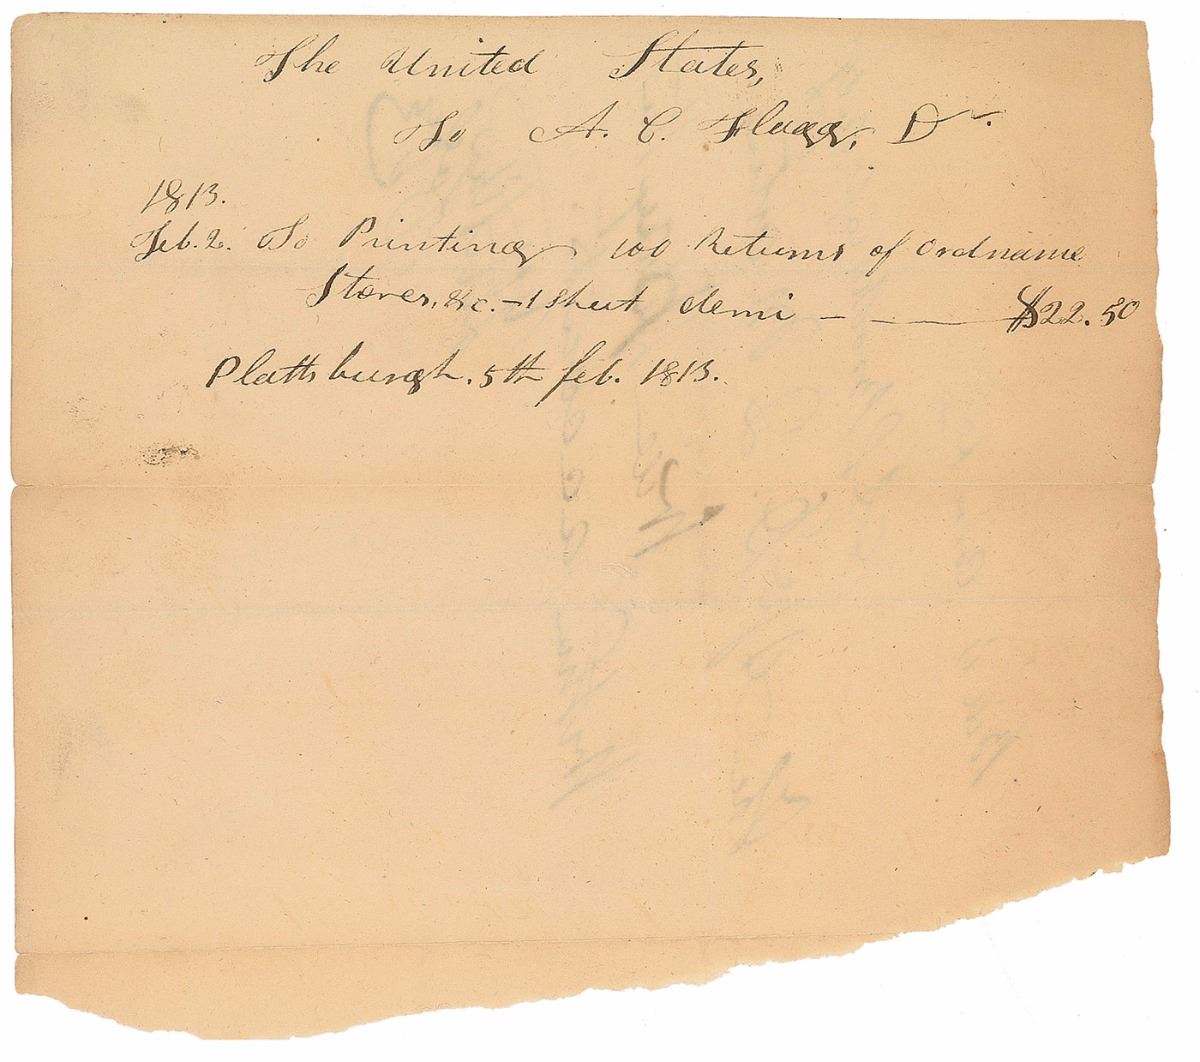 The United States,
To A. C. Flagg, Dr.
1813.
Feb. 2. To Printing 100 Returns of Ordnance
Stores, &c. – 1 sheet demi – — $22.50
Plattsburgh. 5th feb. 1813.